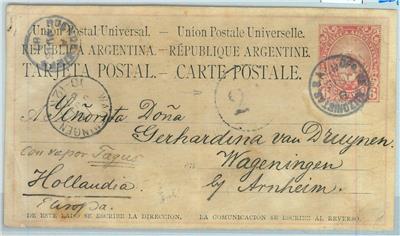 Union Postal Universal. - Union Postale Universelle.
REPÚBLICA ARGENTINA. - RÉPUBLIQUE ARGENTINE.
TARJETA POSTAL. - CARTE POSTALE.
WAGENINGEN
A Señorita Doña
Gerhardina van Druynen,
Wageningen
Con vapor Tagus
b/ Arnheim.
Hollandia
Europa.
DE ESTE LADO SE ESCRIBE LA DIRECCION. LA COMUNICACION SE ESCRIBE AL REVERSO.